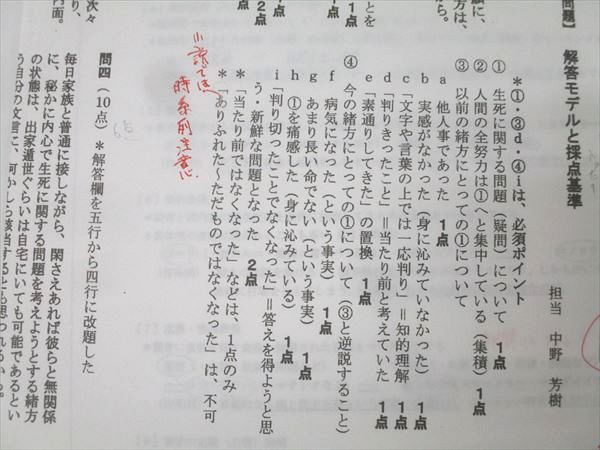 問題】　解答モデルと採点基準
担当　中野　芳樹
＊①・③d・④iは、必須ポイント
①　生死に関する問題（疑問）について　1点
②　人間の全努力は①へと集中している（集積）　1点
③　以前の緒方にとっての①について
a　他人事であった　1点
b　実感がなかった（身に沁みていなかった）　1点
c　「文字や言葉の上では一応判り」＝知的理解　1点
d　「判りきったこと」＝当たり前と考えていた　1点
e　「素通りしてきた」の置換　1点
④　今の緒方にとっての①について（③と逆説すること）
f　病気になった（という事実）　1点
g　あまり長い命でない（という事実）　1点
h　①を痛感した（身に沁みている）　1点
i　「判り切ったことでなくなった」＝答えを得ようと思
う・新鮮な問題となった　2点
＊「当たり前ではなくなった」などは、1点のみ
＊「ありふれた～ただものではなくなった」は、不可
小説では、
時系列注意
問四（10点）＊解答欄を五行から四行に改題した
毎日家族と普通に接しながら、閑さえあれば彼らと無関係
に、秘かに内心で生死に関する問題を考えようとする緒方
の状態は、出家遁世ぐらいは自宅にいても可能であるとい
う自分の文言に、何かしら該当するとも思われるから。